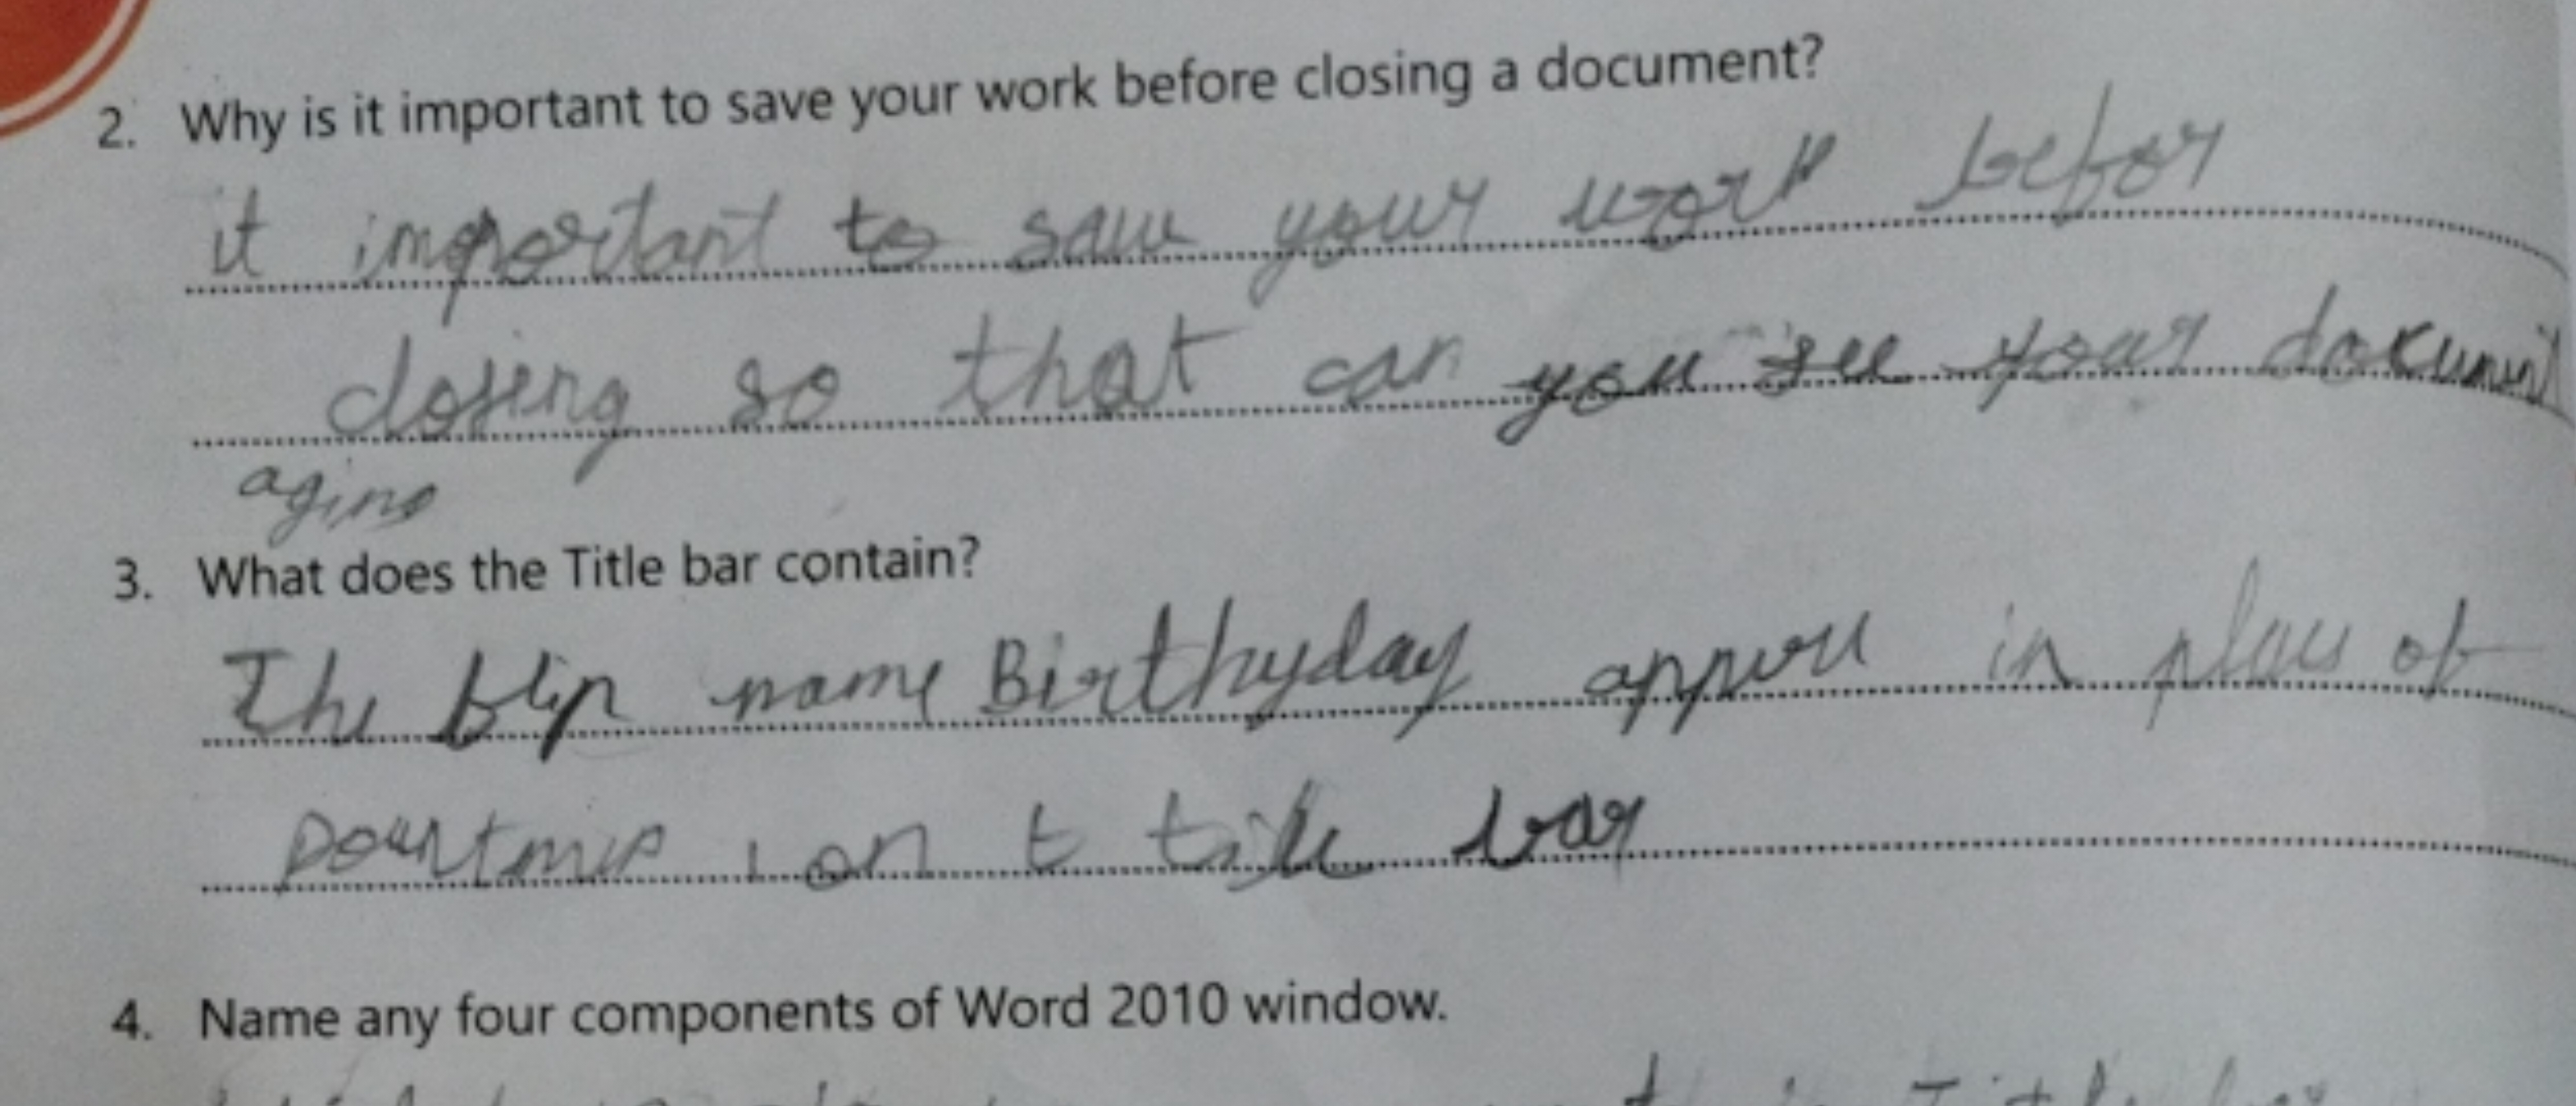 2. Why is it important to save your work before closing a document?
it important to save your work befor
closing so that can you see your document
agino
3. What does the Title bar contain?
The name Birthyday in place of
1 on t bar
4. Name any four components of Word 2010 window.